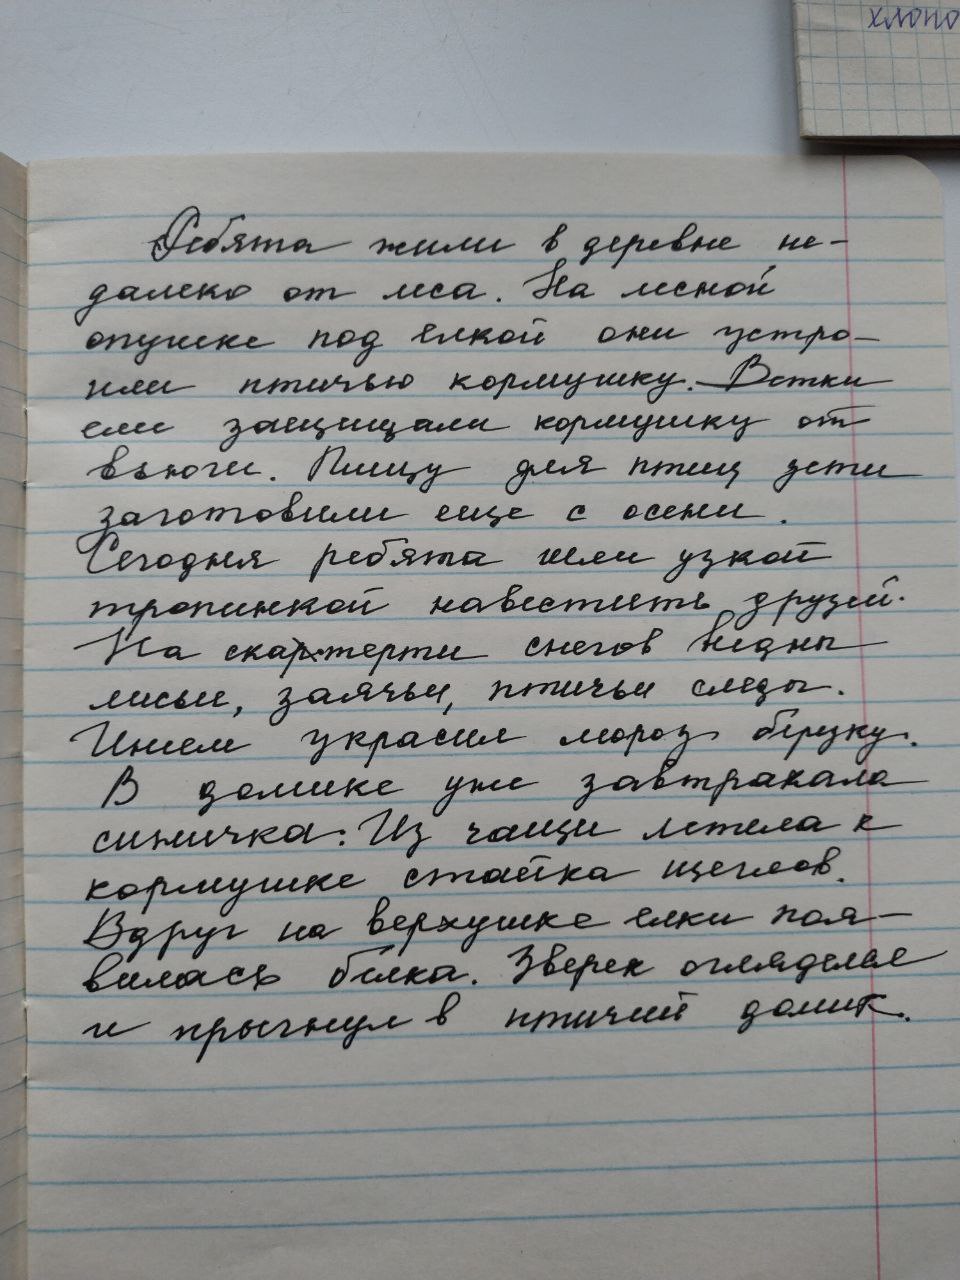 хлопо
Ребята жили в деревне не-
далеко от леса. На лесной
опушке под елкой они устро-
или птичью кормушку. Ветки
ели защищали кормушку от
вьюги. Пищу для птиц дети
заготовили еще с осени.
Сегодня ребята шли узкой
тропинкой навестить друзей.
На скатерти снегов видны
лисьи, заячьи, птичьи следы.
Инеем украсил мороз березку.
В домике уже завтракала
синичка. Из чащи летела к
кормушке стайка щеглов.
Вдруг на верхушке елки поя-
вилась белка. Зверек огляделся
и прыгнул в птичий домик.